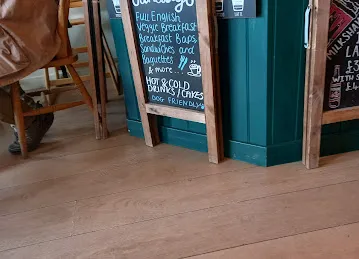 Full English
Veggie Breakfast
Breakfast Baps
Sandwiches and
Baguettes
& more...
Hot & Cold
Drinks / Cakes
DOG FRIENDLY
MILKSHAKES
£3